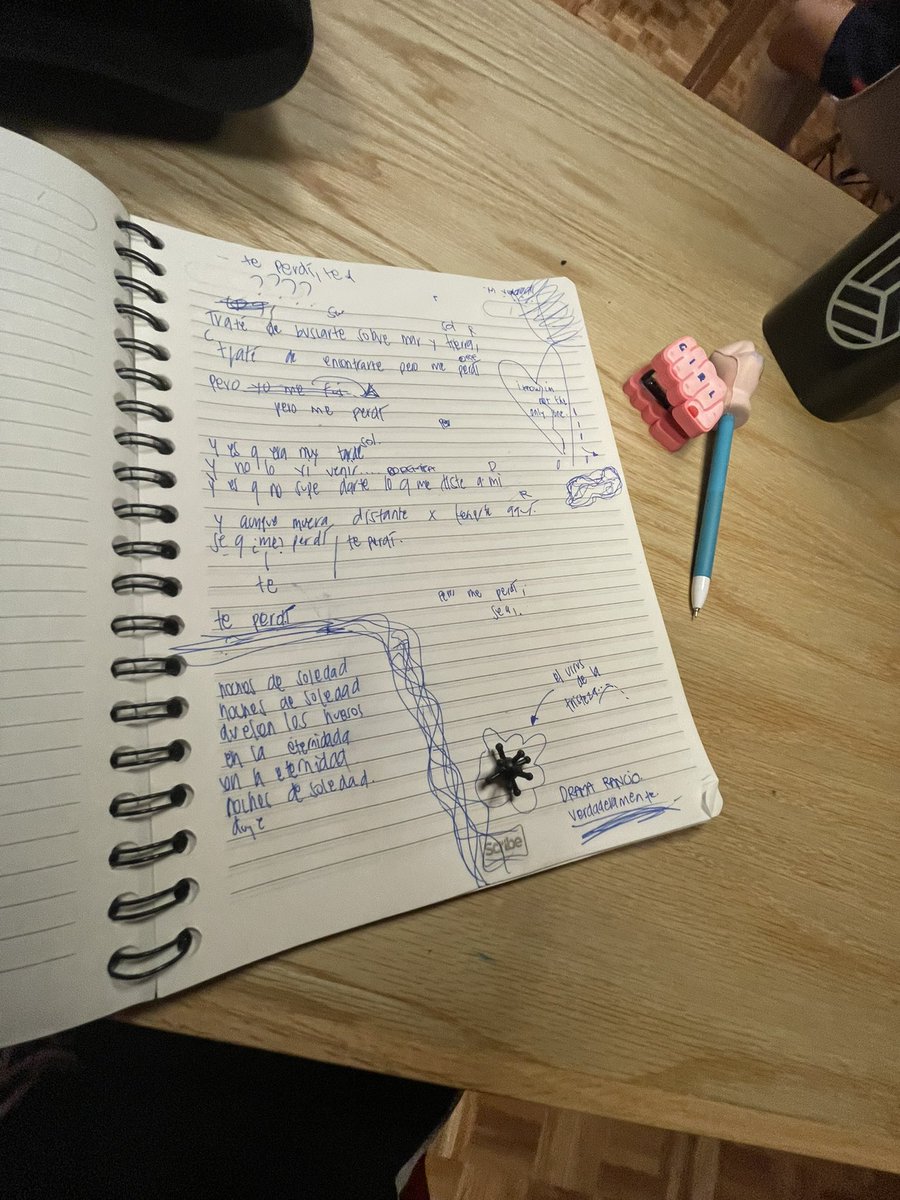 te perdí, te
????
Sol R
Traté de buscarte sobre mar y tierra,
C
traté de encontrarte pero me perdí
pero yo me fui
pero me perdí
sol.
Y es q era muy tarde
y no lo vi venir...
D
y es q no supe darte lo q me diste a mi
R
y aunque muera distante x tenerte aquí.
se q me perdí te perdí.
te
te perdí
pero me perdí,
I know im
not the
only one
noches de soledad
noches de soledad
duelen los huesos
en la eternidada
en la eternidad
noches de soledad.
el virus
de la
tristeza
DRAMA RANCIO.
verdaderamente.
Scribe
GIRL